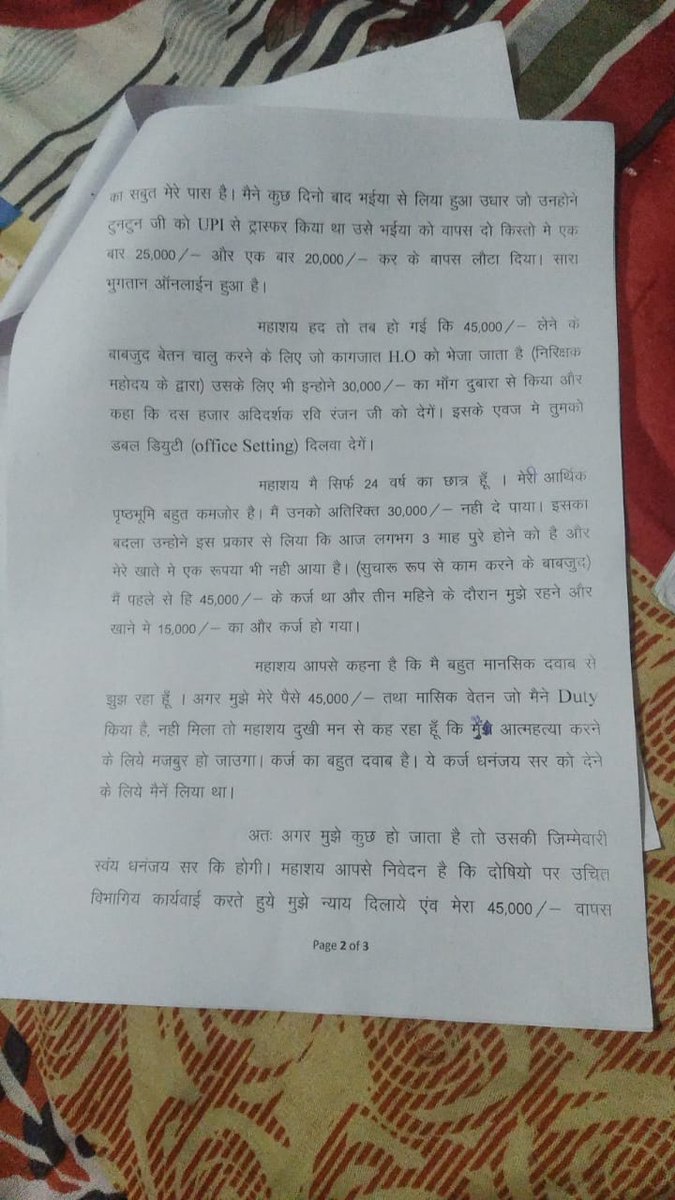 का सबुत मेरे पास है। मैने कुछ दिनो बाद भईया से लिया हुआ उधार जो उनहोने
टुनटुन जी को UPI से ट्रास्फर किया था उसे भईया को वापस दो किस्तो मे एक
बार 25,000/– और एक बार 20,000/– कर के बापस लौटा दिया। सारा
भुगतान ऑनलाईन हुआ है।
महाशय हद तो तब हो गई कि 45,000/– लेने के
बाबजुद बेतन चालु करने के लिए जो कागजात H.O को भेजा जाता है (निरिक्षक
महोदय के द्वारा) उसके लिए भी इन्होने 30,000/– का माँग दुबारा से किया और
कहा कि दस हजार अदिदर्शक रवि रंजन जी को देगें। इसके एवज मे तुमको
डबल डियुटी (office Setting) दिलवा देगें।
महाशय मै सिर्फ 24 वर्ष का छात्र हूँ । मेरी आर्थिक
पृष्ठभूमि बहुत कमजोर है। मै उनको अतिरिक्त 30,000/– नही दे पाया। इसका
बदला उन्होने इस प्रकार से लिया कि आज लगभग 3 माह पुरे होने को है और
मेरे खाते मे एक रूपया भी नही आया है। (सुचारू रूप से काम करने के बाबजुद)
मैं पहले से हि 45,000/– के कर्ज था और तीन महिने के दौरान मुझे रहने और
खाने मे 15,000/– का और कर्ज हो गया।
महाशय आपसे कहना है कि मै बहुत मानसिक दवाब से
झुझ रहा हूँ । अगर मुझे मेरे पैसे 45,000/– तथा मासिक वेतन जो मैने Duty
किया है, नही मिला तो महाशय दुखी मन से कह रहा हूँ कि आत्महत्या करने
के लिये मजबुर हो जाउगा। कर्ज का बहुत दवाब है। ये कर्ज धनंजय सर को देने
के लिये मैनें लिया था।
अतः अगर मुझे कुछ हो जाता है तो उसकी जिम्मेवारी
स्वंय धनंजय सर कि होगी। महाशय आपसे निवेदन है कि दोषियो पर उचित
विभागिय कार्यवाई करते हुये मुझे न्याय दिलाये एंव मेरा 45,000/– वापस
Page 2 of 3